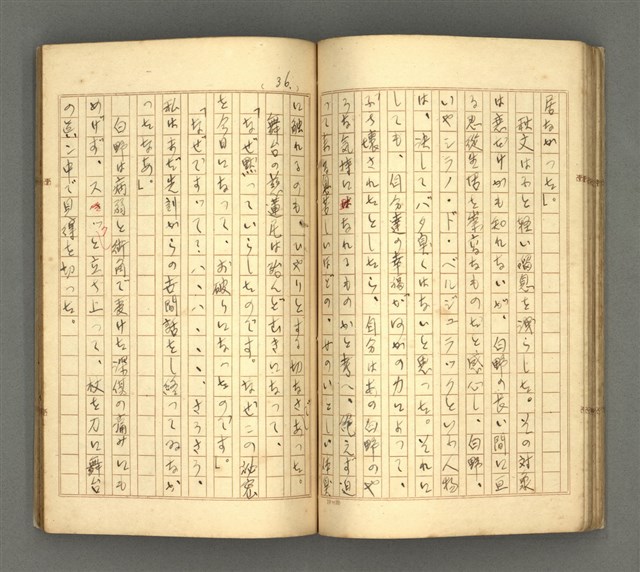 居なかった」。
秋文はふと軽い喘息を洩らした。その対象
は悪だけかも知れないが、白野の長い間に亘
る忍従生活を崇高なものだと感心し、白野、
いやシラノ・ド・ベルジュラックといふ人物
は、決してバタ臭くはないと思った。それに
しても、自分達の幸福がほかの力によって、
ぶち壊されたとしたら、自分はあの白野のや
うな気持になれるものかと考へ、絶えず迫
って
(36.)
に触れるのも、ひやりとする切なさあった。
舞台の
「なぜ黙っていらしたのです。なぜこの秘密
を今日になって、お破りになったのです」。
「なぜですって？ハ、ハ、、、、さうさう、
私はまだ先刻からの古聞話をし終ってゐなか
ったなあ」。
白野は病弱と街角で受けた深傷の痛みにも
めげず、スーッと立ち上って、杖を刀に舞台
の真ン中で見得を切った。